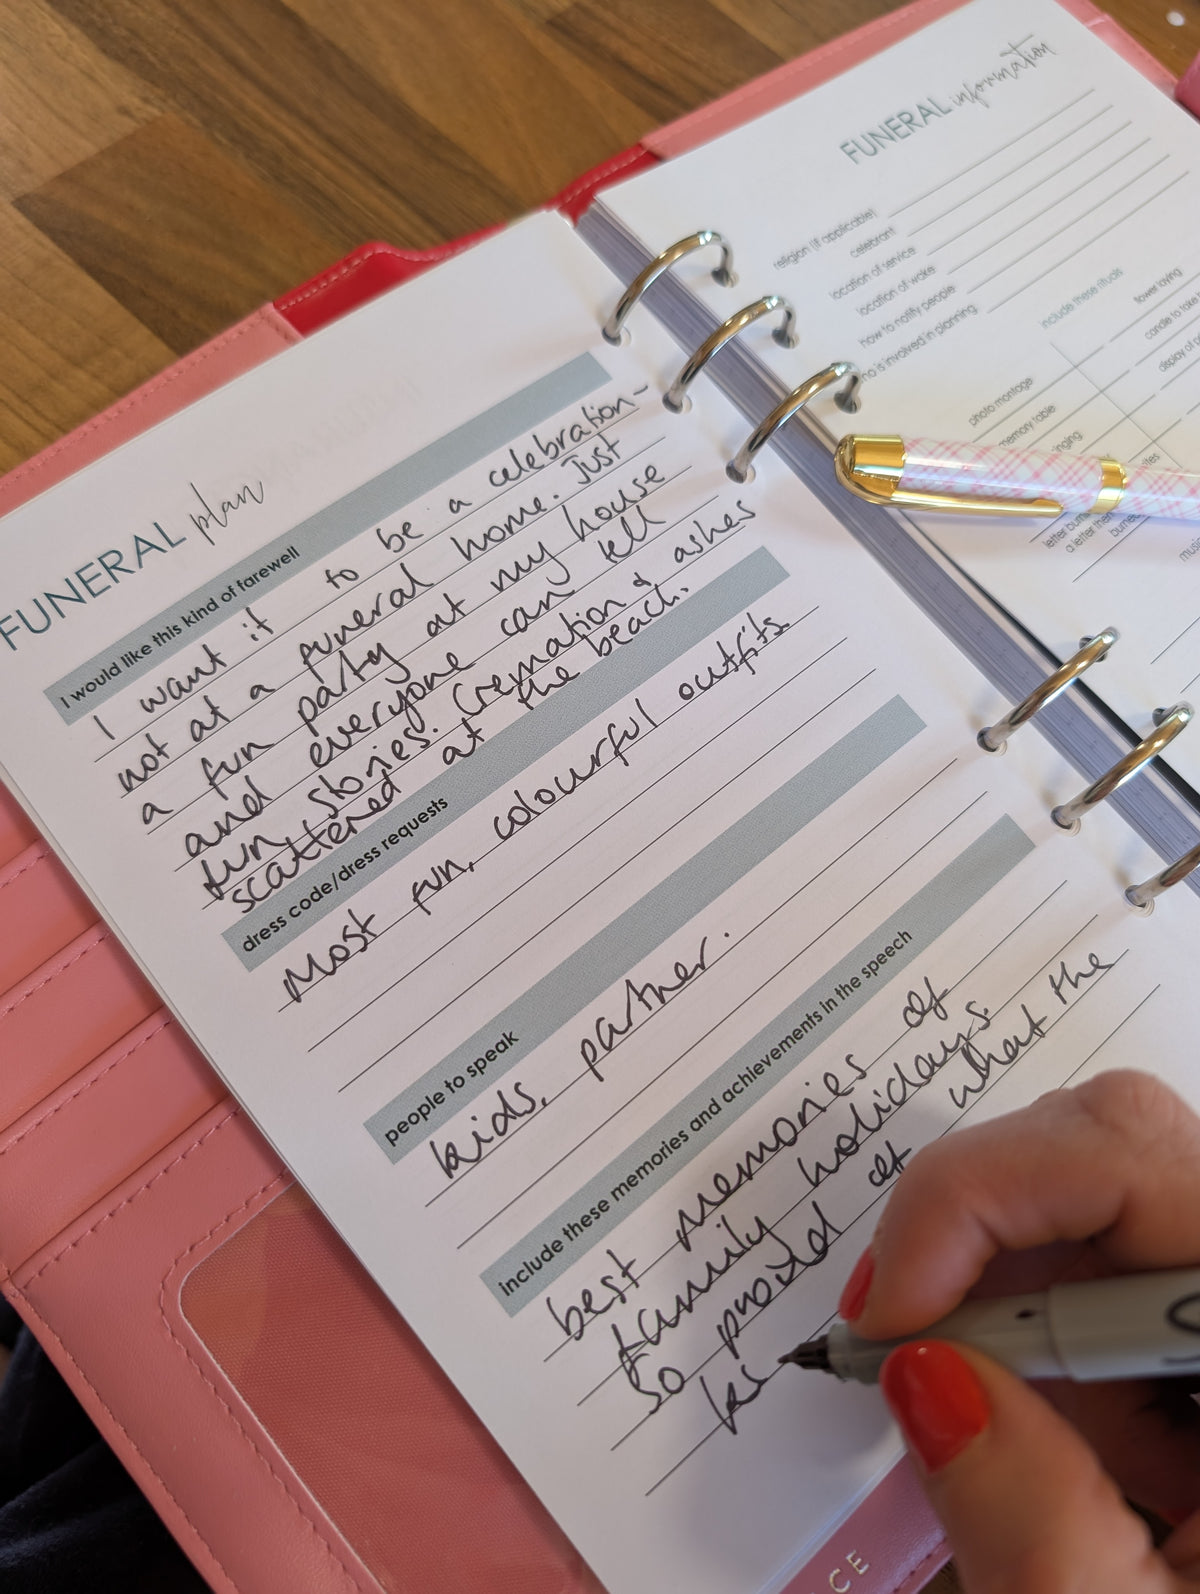 FUNERAL plan
I would like this kind of farewell
I want it to be a celebration-
not at a funeral home. Just
a fun party at my house
and everyone can tell
fun stories. Cremation & ashes
scattered at the beach.
dress code/dress requests
Most fun, colourful outfits.
people to speak
kids, partner.
include these memories and achievements in the speech
best memories of
family holidays.
So proud of what the
FUNERAL information
religion (if applicable)
celebrant
location of service
location of wake
how to notify people
is involved in planning
include these rituals
photo montage
memory table
candle to
display of
letter
a letter